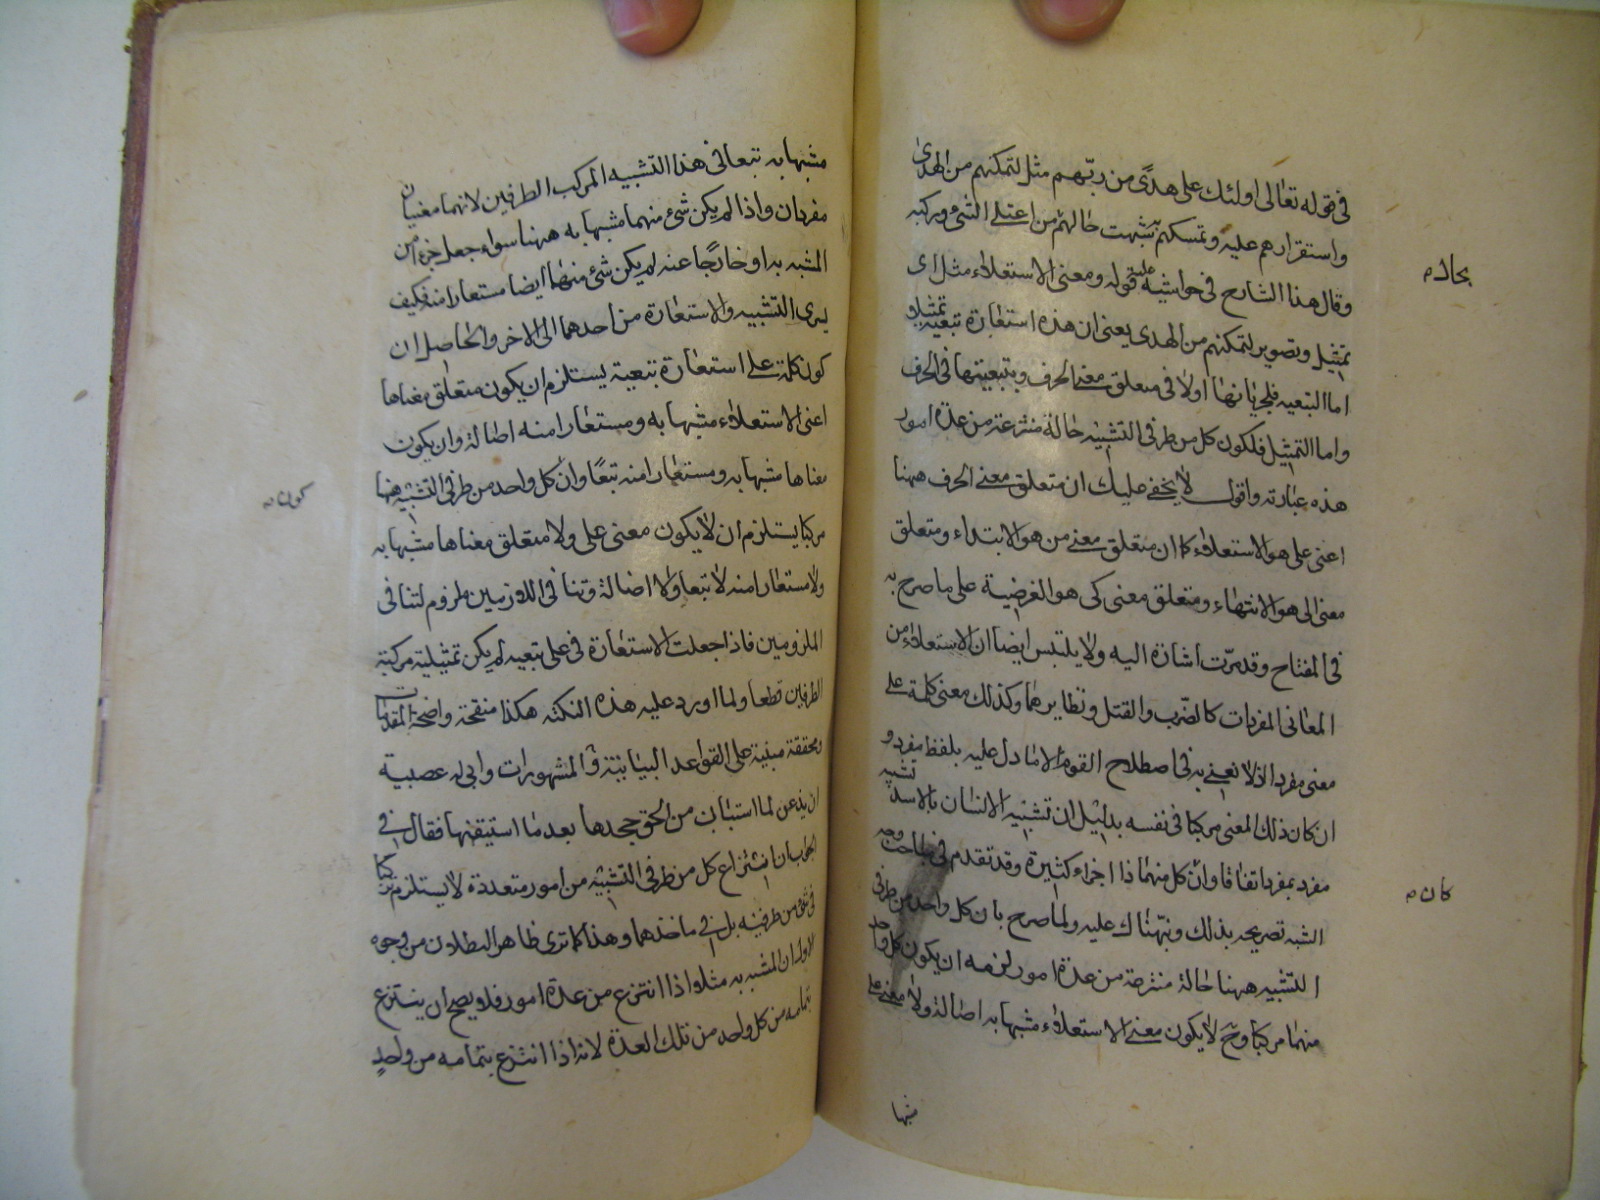 في قوله تعالى اولئك على هدًى من ربّهم مثل لتمكنهم من الهدى
واستقرارهم عليه وتمسكهم به شبهت حالهم من اعتلى الشئ وركبه
وقال هذا الشارح في حواشيه عليه قوله ومعنى الاستعلاء مثل اى
تمثيل وتصوير لتمكنهم من الهدى يعنى ان هذه استعارة تبعية تمثيلا
اما التبعيه فلجريانها اولا فى متعلق معنى الحرف وبتبعيتها فى الحرف
واما التمثيل فلكون كل من طرفى التشبيه حالة منتزعة من عدة امور
هذه عبارته واقول لا يخفى عليك ان متعلق معنى الحرف ههنا
اعنى على هو الاستعلاء كما ان متعلق معنى من هو الابتداء ومتعلق
معنى الى هو الانتهاء ومتعلق معنى كى هو الغرضية على ما صرح به
فى المفتاح وقد مرّت اشارة اليه ولا يلتبس ايضا ان الاستعلاء من
المعانى المفردات كالضرب والقتل ونظايرهما وكذلك معنى كلمة على
معنى مفرد اذ لا نعنى به فى اصطلاح القوم الا ما دل عليه بلفظ مفرد و
ان كان ذلك المعنى مركبا فى نفسه بدليل ان تشبيه الانسان بالاسد تشبيه
مفرد بمفرد اتفاقا وان كل منهما ذا اجزاء كثيرة وقد تقدم فى مباحث وجه
الشبه تصريحه بذلك ونبّهناك عليه ولما صرح بان كل واحد من طرفى
التشبيه ههنا حالة منتزعة من عدة امور لزمه ان يكون كل واحد
منهما مركبا وح لا يكون معنى الاستعلاء مشبها به اصالة ولا معنى على
مشبها
بحاله
كان
مشبها به تبعا فى هذا التشبيه المركب الطرفين لانهما معنيان
مفردان واذا لم يكن شئ منهما مشبها به ههنا سواء جعل جزء من
المشبه به او خارجا عنه لم يكن شئ منهما ايضا مستعارا منه فكيف
يسرى التشبيه والاستعارة من احدهما الى الاخر والحاصل ان
كون كلمة على استعارة تبعية يستلزم ان يكون متعلق معناها
اعنى الاستعلاء مشبها به ومستعارا منه اصالة وان يكون
معناها مشبها به ومستعارا منه تبعًا وان كل واحد من طرفى التشبيه ههنا
مركبا يستلزم ان لا يكون معنى على ولا متعلق معناها مشبها به
ولا مستعارا منه لا تبعا ولا اصالة وتنافى اللازمين ملزوم لتنافى
الملزومين فاذا جعلت الاستعارة فى على تبعيه لم يكن تمثيلية مركبة
الطرفين قطعا ولما اورد عليه هذه النكتة هكذا منقحة واضحة المقدمات
محققة مبنية على القواعد البيانية والمشهورات وابى له عصبية
ان يذعن لما استبان من الحق جحدها بعد ما استيقنها فقال فى
الجواب ان انتزاع كل من طرفى التشبيه من امور متعددة لا يستلزم تركبا
فى شئ من طرفيه بل فى ماخذهما وهذا كما ترى ظاهر البطلان من وجوه
الاول ان المشبه به مثلا اذا انتزع من عدة امور فلا يصح ان ينتزع
بتمامه من كل واحد من تلك العدة لانه اذا انتزع بتمامه من واحدٍ
كون